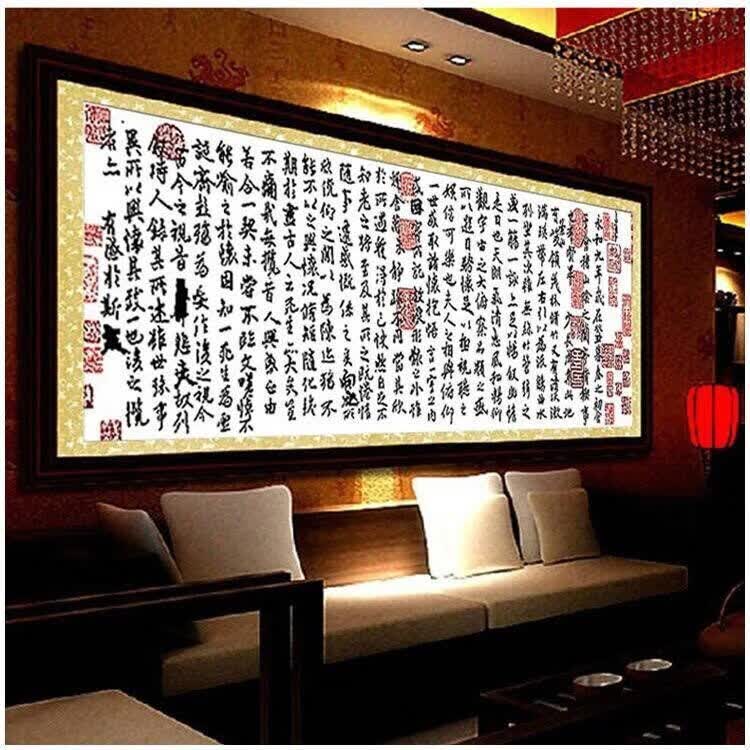 永和九年歲在癸丑暮春之初會
稽山陰之蘭亭脩稧事
也群賢畢至少長咸集此地
有崇山峻領茂林脩竹又有清流激
湍暎帶左右引以為流觴曲水
列坐其次雖無絲竹管弦之
盛一觴一詠亦足以暢敘幽情
是日也天朗氣清惠風和暢仰
觀宇宙之大俯察品類之盛
所以遊目騁懷足以極視聽之
娛信可樂也夫人之相與俯仰
一世或取諸懷抱悟言一室之內
或因寄所託放浪形骸之外雖
趣舍萬殊靜躁不同當其欣
於所遇蹔得於己怏然自足不
知老之將至及其所之既惓情
隨事遷感慨係之矣向之
欣俛仰之間以為陳迹猶不
能不以之興懷況脩短隨化終
期於盡古人云死生亦大矣豈
不痛哉每攬昔人興感之由
若合一契未嘗不臨文嗟悼不
能喻之於懷固知一死生為虛
誕齊彭殤為妄作後之視今
亦由今之視昔悲夫故列
敘時人錄其所述雖世殊事
異所以興懷其致一也後之攬
者亦有感於斯文